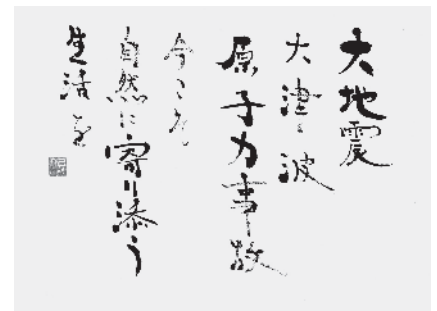 大地震
大津波
原子力事故
今こそ
自然に寄り添う
生活を